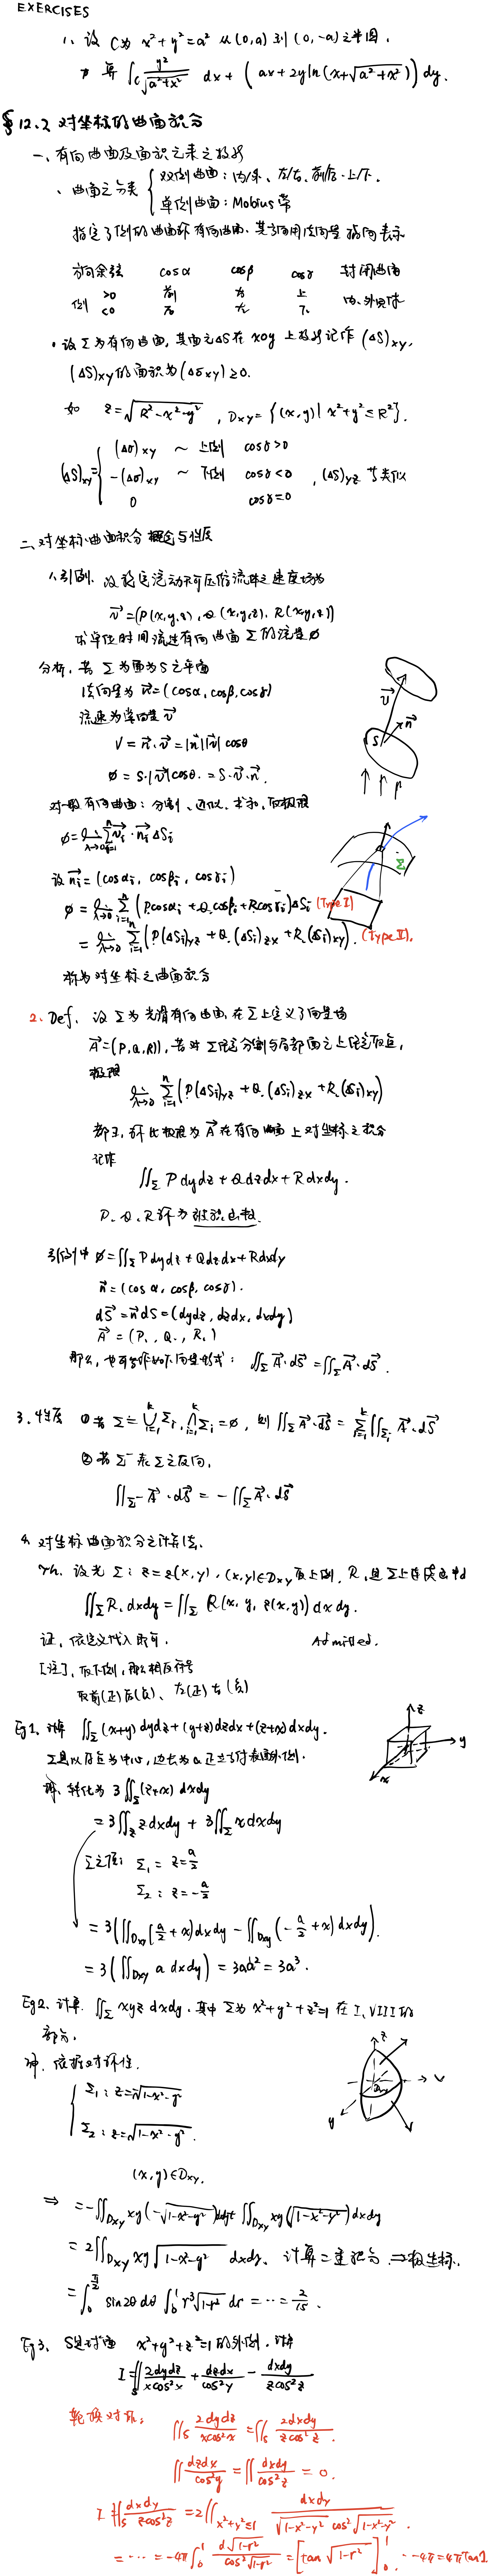 EXERCISES
1. 设 C为 x²+y²=a² 从(0,a)到(0,-a)之半圆,
计算 ∫_C y²/√(a²+x²) dx + (ax+2yln(x+√(a²+x²))) dy.
§12.2 对坐标的曲面积分
一、有向曲面及面积元素之投影
、曲面之分类 { 双侧曲面:内/外、左/右、前/后、上/下.
单侧曲面:Mobius带
指定了侧的曲面称有向曲面,其方向用法向量指向表示
方向余弦 cosα cosβ cosγ 封闭曲面
侧 >0 前 右 上 内、外
<0 后 左 下
• 设Σ为有向曲面,其面元ΔS在xoy上投影记作(ΔS)xy,
(ΔS)xy的面积为(Δσxy)≥0.
如 z=√(R²-x²-y²), Dxy={(x,y)|x²+y²≤R²}.
(ΔS)xy= { (Δσ)xy ~ 上侧 cosγ>0
-(Δσ)xy ~ 下侧 cosγ<0 , (ΔS)yz 等类似
0 cosγ=0
二、对坐标曲面积分概念与性质
1、引例、设稳定流动不可压缩流体之速度场为
v⃗=(P(x,y,z), Q(x,y,z), R(x,y,z))
求单位时间流过有向曲面Σ的流量Φ
分析,若Σ为面为S之平面
法向量为n⃗=(cosα, cosβ, cosγ)
流速为常向量v⃗
V=n⃗·v⃗=|n⃗||v⃗|cosθ
Φ=S·|v⃗|cosθ.=S·v⃗·n⃗.
对一般有向曲面:分割、近似、求和、取极限
Φ=lim_{λ→0} Σ_{i=1}^n v⃗i·n⃗i ΔSi
设n⃗i=(cosαi, cosβi, cosγi)
Φ=lim_{λ→0} Σ_{i=1}^n (P.cosαi+Q.cosβi+R.cosγi)ΔSi (Type I)
=lim_{λ→0} Σ_{i=1}^n (P(ΔSi)yz+Q.(ΔSi)zx+R.(ΔSi)xy). (Type II).
称为对坐标之曲面积分
2、Def. 设Σ为光滑有向曲面,在Σ上定义了向量场
A⃗=(P,Q,R), 若对Σ任意分割与局部面元上任意取点,
极限
lim_{λ→0} Σ_{i=1}^n (P(ΔSi)yz+Q.(ΔSi)zx+R.(ΔSi)xy)
都∃,称此极限为A⃗在有向曲面上对坐标之积分
记作
∬_Σ Pdydz+Qdzdx+Rdxdy.
P、Q、R称为被积函数.
引例中 Φ=∬_Σ Pdydz+Qdzdx+Rdxdy
n⃗=(cosα, cosβ, cosγ).
dS⃗=n⃗dS=(dydz, dzdx, dxdy)
A⃗=(P., Q., R.)
那么,也可写作如下向量形式: ∬_Σ A⃗·dS⃗=∬_Σ A⃗·dS⃗.
3、性质 ①若Σ=⋃_{i=1}^k Σi, ⋂_{i=1}^k Σi=∅, 则∬_Σ A⃗·dS⃗=Σ_{i=1}^k ∬_{Σi} A⃗·dS⃗
②若Σ⁻表Σ之反向,
∬_{Σ⁻} A⃗·dS⃗=-∬_Σ A⃗·dS⃗
4、对坐标曲面积分之计算法.
Th. 设光Σ: z=z(x,y), (x,y)∈Dxy取上侧, R.是Σ上连续函数
∬_Σ R.dxdy=∬_Σ R(x,y,z(x,y))dxdy.
证,依定义代入即可. Admitted.
[注],取下侧,那么相反符号
取前(正)后(负)、右(正)左(负)
Eg1、计算 ∬_Σ (x+y)dydz+(y+z)dzdx+(z+x)dxdy.
Σ是以原点为中心,边长为a正立方体表面外侧.
解、转化为 3∬_Σ (z+x)dxdy
=3∬_Σ zdxdy+3∬_Σ xdxdy
Σ之顶: Σ1=z=a/2
Σ2: z=-a/2
=3(∬_{Dxy}[a/2+x)dxdy-∬_{Dxy}(-a/2+x)dxdy).
=3(∬_{Dxy} a dxdy)=3aa²=3a³.
Eg2、计算 ∬_Σ xyz dxdy. 其中Σ为x²+y²+z²=1在I、VIII的
部分.
解、依据对称性.
{ Σ1: z=√(1-x²-y²)
Σ2: z=√(1-x²-y²).
(x,y)∈Dxy.
⇒ =-∬_{Dxy} xy(-√(1-x²-y²))dxdy+∬_{Dxy} xy(√(1-x²-y²))dxdy
=2∬_{Dxy} xy√(1-x²-y²) dxdy、计算二重积分⇒极坐标.
=∫_0^{π/2} sin2θdθ ∫_0^1 r³√(1-r²) dr=···=2/15.
Eg3、S是球面 x²+y²+z²=1的外侧,计算
I=∬_S 2dydz/(xcos²x)+dzdx/cos²y-dxdy/(zcos²z)
轮换对称:
∬_S 2dydz/(xcos²x)=∬_S 2dxdy/(zcos²z).
∬ dzdx/cos²y=∬ dxdy/cos²z=0.
I=∬_S dxdy/(zcos²z)=2∬_{x²+y²≤1} dxdy/(√(1-x²-y²) cos²√(1-x²-y²)).
=···=-4π∫_0^1 d√(1-r²)/cos²√(1-r²)=[tan√(1-r²)]_0^1 · -4π=4πtan1